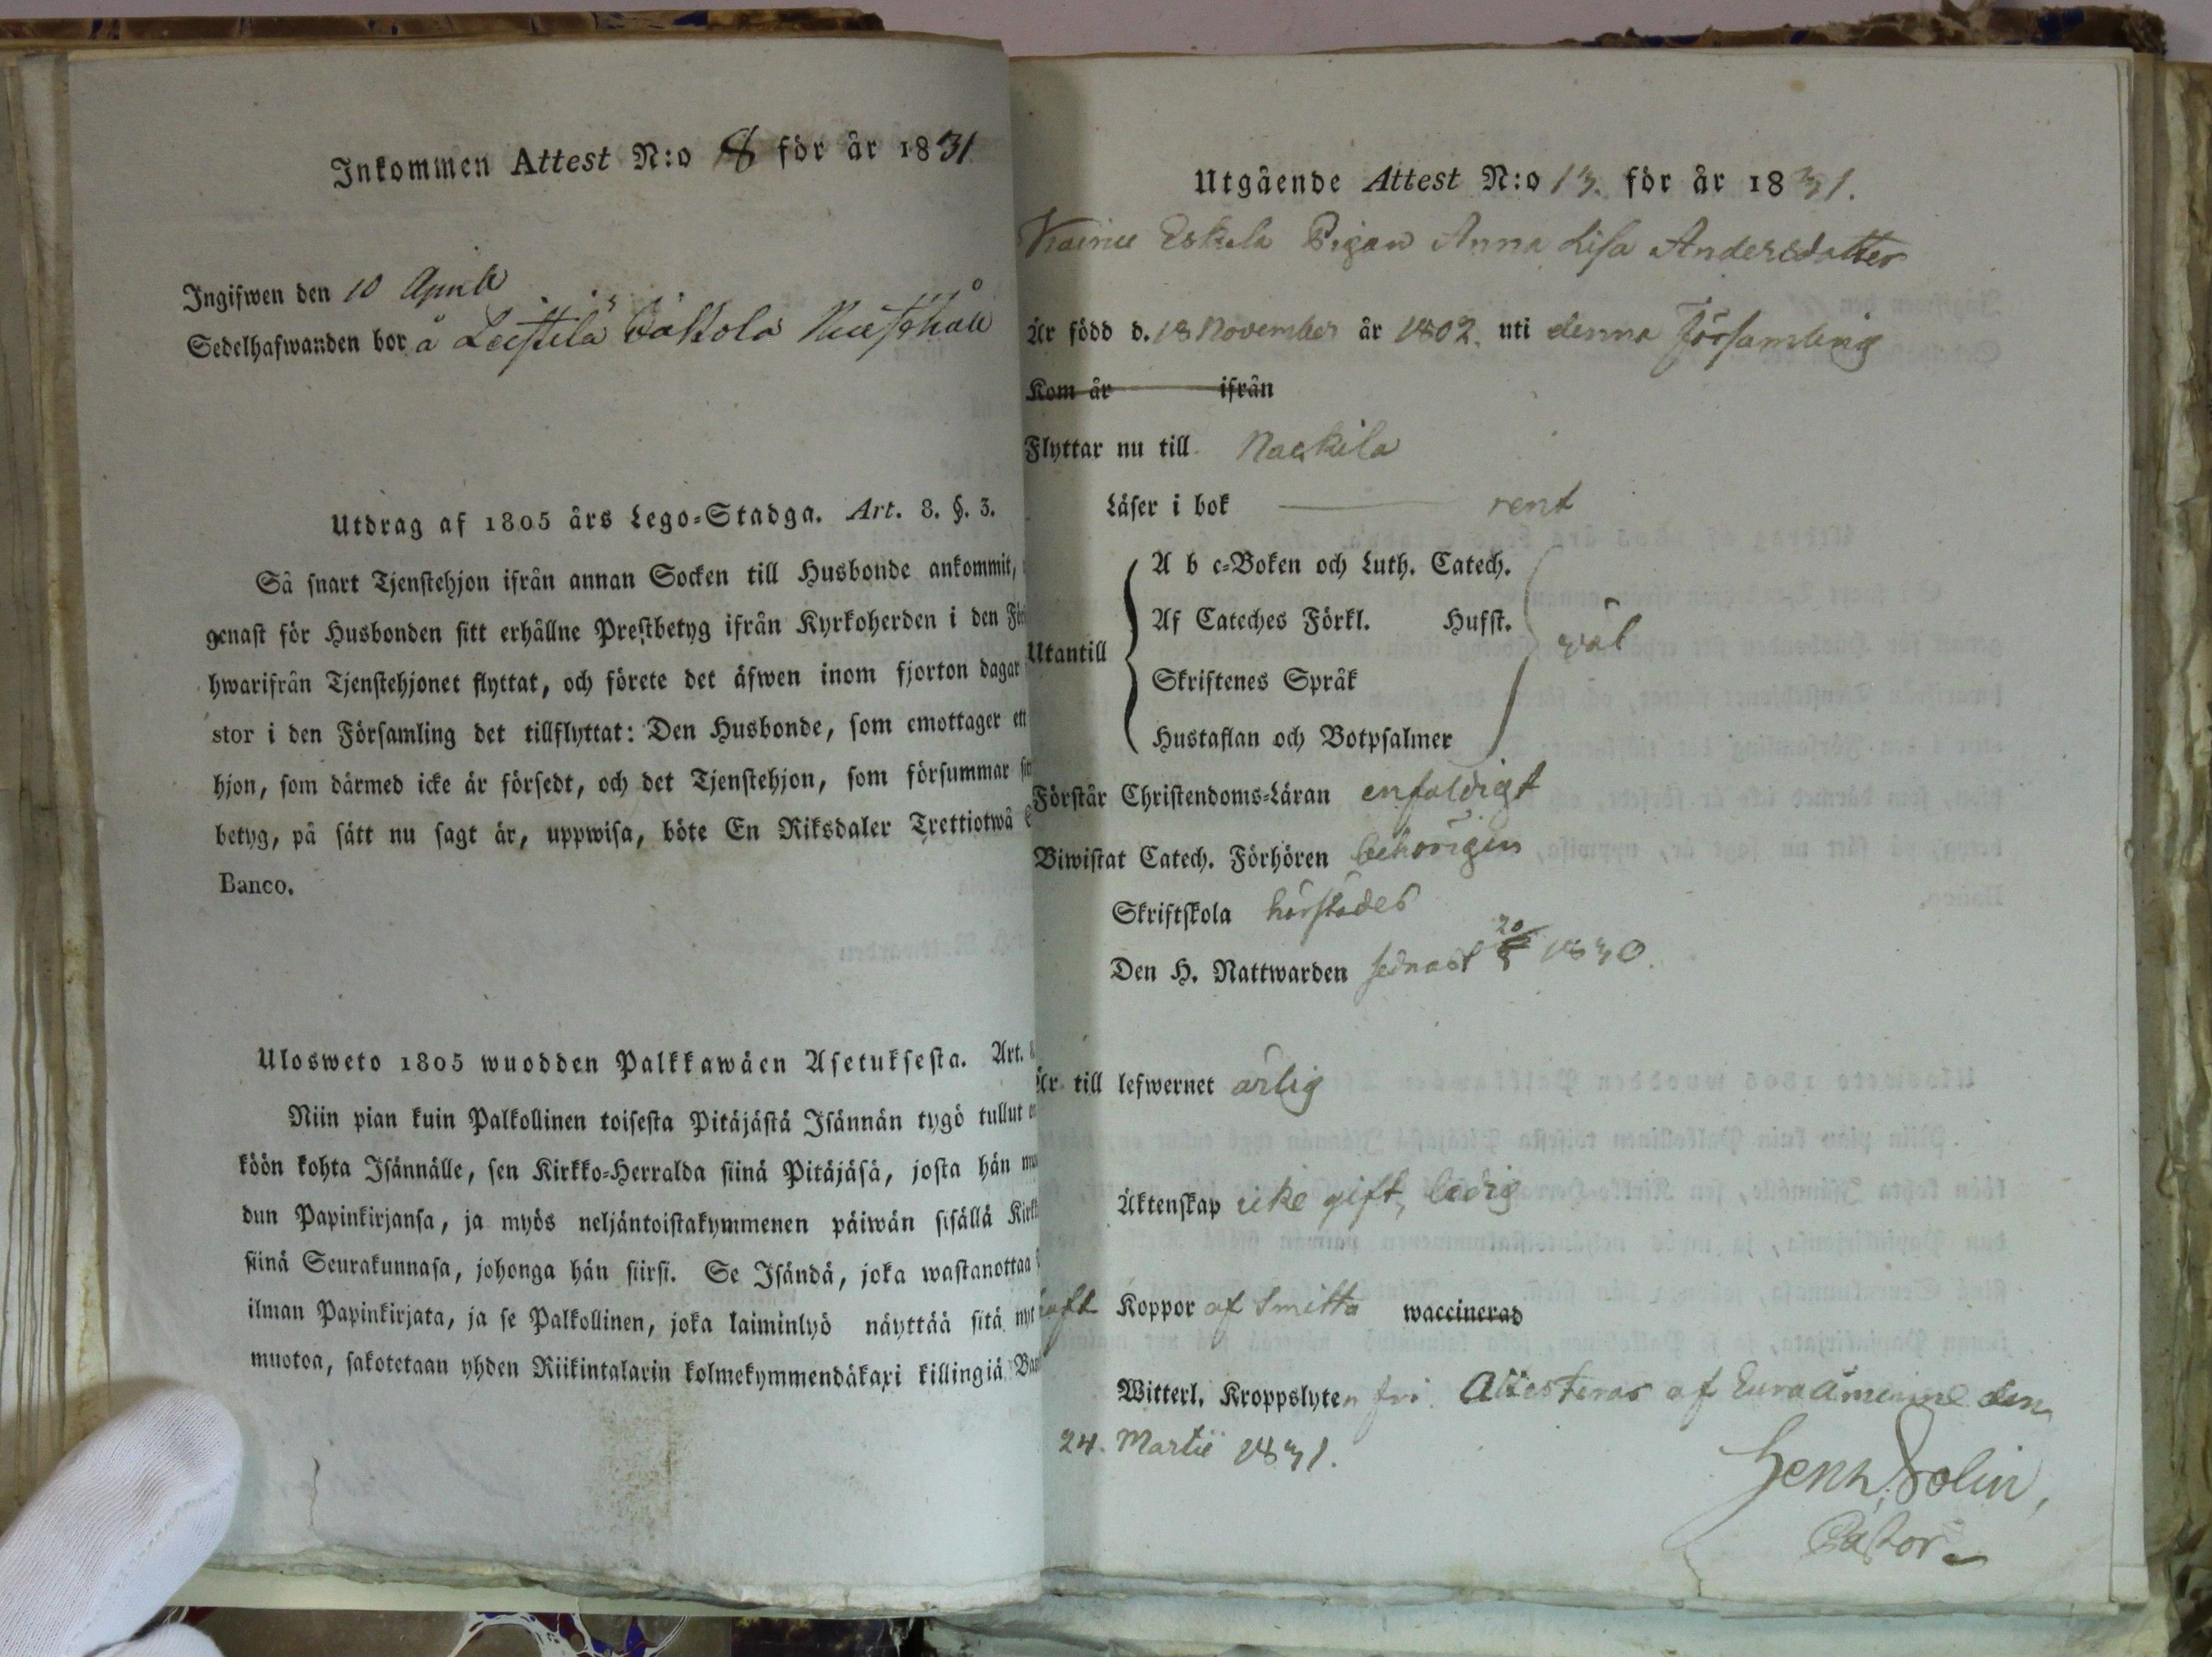 Inkommen Attest N:o 8 för år 1831
Ingifwen den 10 April
Sedelhafwanden bor å Leistilä
Utdrag af 1805 års Lego-Stadga. Art. 8. §. 3.
Så snart Tjenstehjon ifrån annan Socken till Husbonde ankommit,
genast för Husbonden sitt erhållne Prestbetyg ifrån Kyrkoherden i den
hwarifrån Tjenstehjonet flyttat, och förete det äfwen inom fjorton dagar
stor i den Församling det tillflyttat: Den Husbonde, som emottager ett
hjon, som därmed icke är försedt, och det Tjenstehjon, som försummar
betyg, på sätt nu sagt är, uppwisa, böte En Riksdaler Trettiotwå
Banco.
Ulosweto 1805 wuodden Palkkawäen Asetuksesta. Art.
Niin pian kuin Palkollinen toisesta Pitäjästä Isännän tygö tullut
köön kohta Isännälle, sen Kirkko-Herralda siinä Pitäjäsä, josta hän
dun Papinkirjansa, ja myös neljäntoistakymmenen päiwän sisällä
siinä Seurakunnasa, johonga hän siirsi. Se Isändä, joka wastanottaa
ilman Papinkirjata, ja se Palkollinen, joka laiminlyö näyttää sitä
muotoa, sakotetaan yhden Riikintalarin kolmekymmendäkaxi killingiä
Utgående Attest N:o 13. för år 1831.
Eskola Pigan Anna Lisa Andersdotter
Är född d. 18 November år 1802. uti denna Församling
Kom år ifrån
Flyttar nu till Nackila
Läser i bok rent
A b c-Boken och Luth. Catech.
Af Cateches Förkl. Hufst.
Utantill wäl
Skriftenes Språk
Hustaflan och Botpsalmer
Förstår Christendoms-Läran enfaldigt
Biwistat Catech. Förhören behörigen
Skriftskola härstädes
Den H. Nattwarden sednast 1830.
Är till lefwernet ärlig
Äktenskap icke gift, ledig
haft Koppor af Smitta waccinerad
Witterl. Kroppslyten fri. Attesteras af Euraåminne den
24. Martii 1831.
Henr. Polin,
Pastor